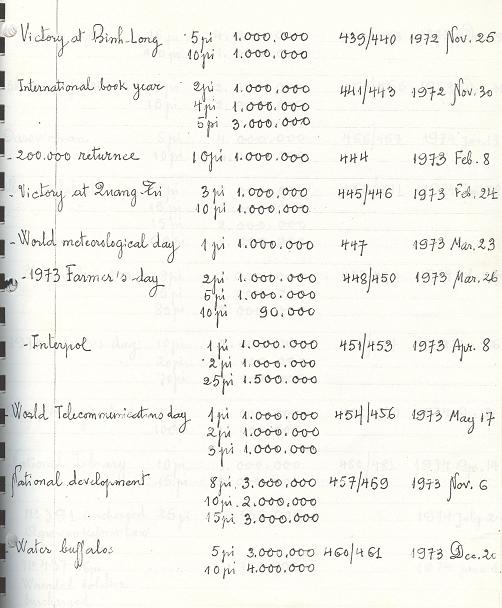 Victory at Binh-Long 5pi 1.000.000 439/440 1972 Nov. 25
10pi 1.000.000
International book year 2pi 1.000.000 441/443 1972 Nov. 30
4pi 1.000.000
5pi 3.000.000
- 200.000 returnee 10pi 1.000.000 444 1973 Feb. 8
- Victory at Quang-Tri 3pi 1.000.000 445/446 1973 Feb. 24
10pi 1.000.000
- World meteorological day 1pi 1.000.000 447 1973 Mar. 23
- 1973 Farmer's day 2pi 1.000.000 448/450 1973 Mar. 26
5pi 1.000.000
10pi 90.000
- Interpol 1pi 1.000.000 451/453 1973 Apr. 8
2pi 1.000.000
25pi 1.500.000
- World Telecommunications day 1pi 1.000.000 454/456 1973 May 17
2pi 1.000.000
3pi 1.000.000
National development 8pi 3.000.000 457/469 1973 Nov. 6
10pi 2.000.000
15pi 3.000.000
- Water buffalos 5pi 3.000.000 460/461 1973 Dec. 20
10pi 4.000.000